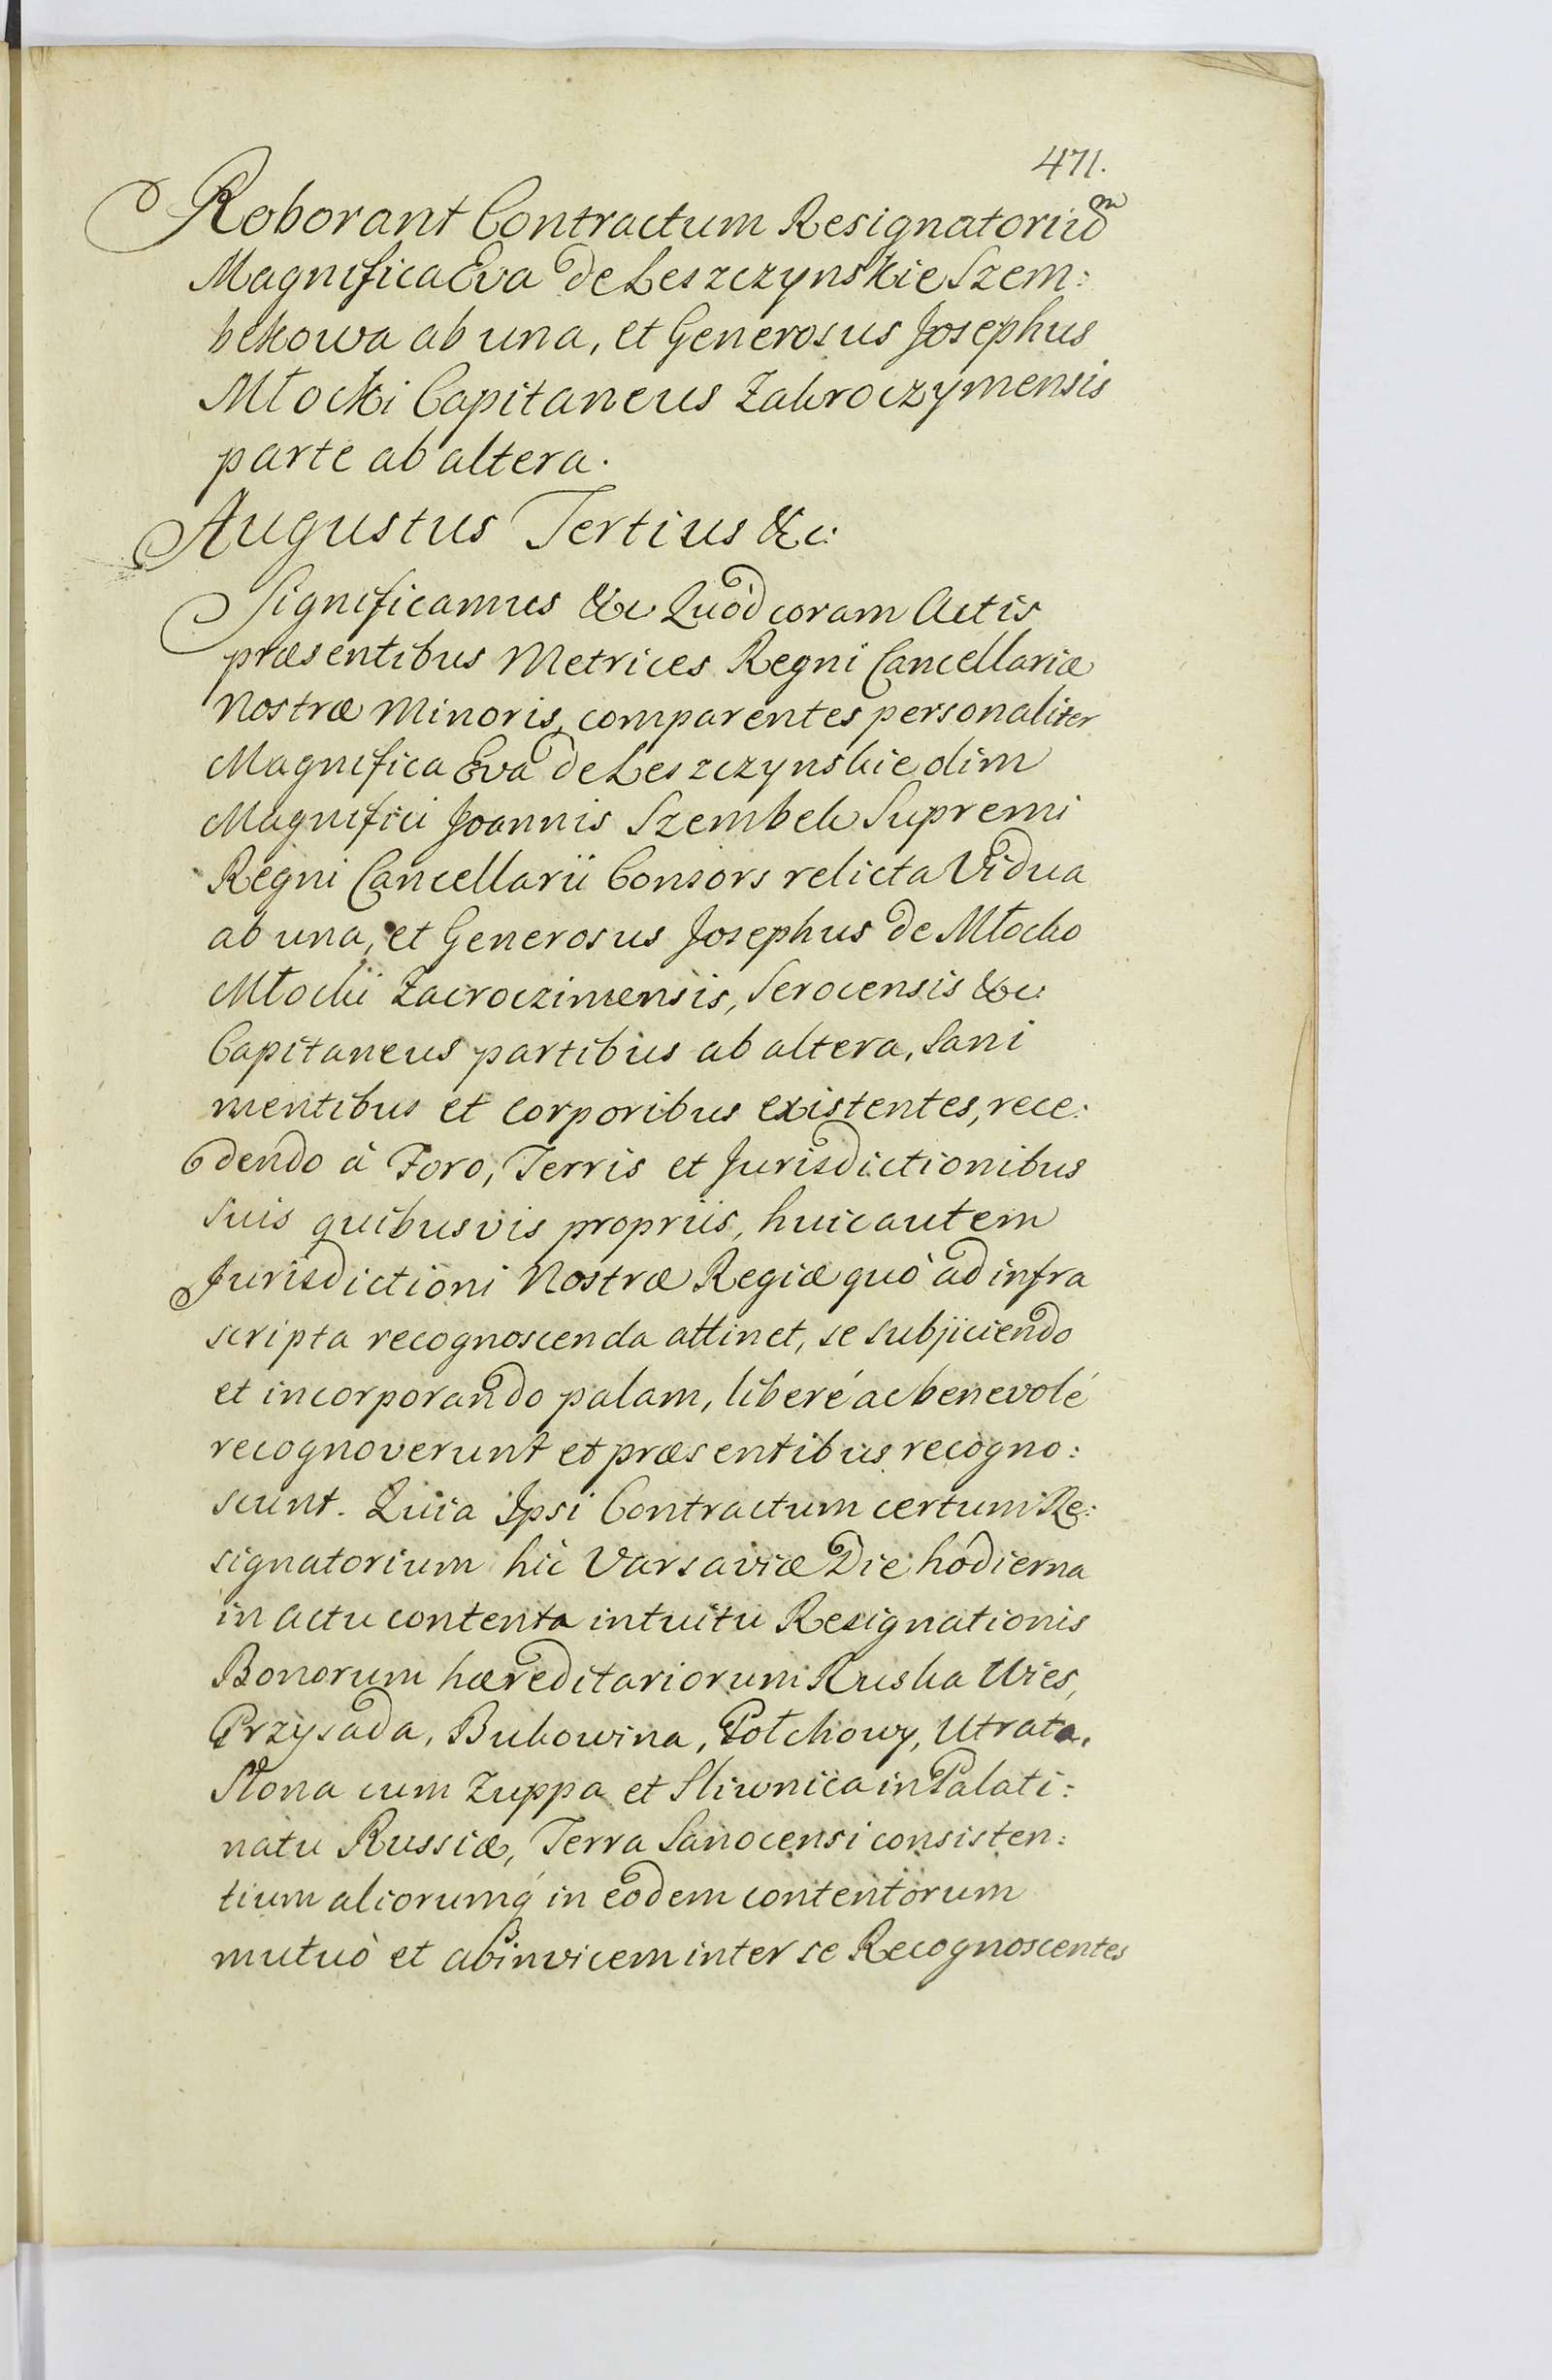 471.
Roborant Contractum Resignatoriũ
Magnifica Eva de Leszczynskie Szem:
bekowa ab una, et Generosus Josephus
Młocki Capitaneus Zakroczymensis
parte ab altera.
Augustus Tertius &c:
Significamus &c Quòd coram Actis
præsentibus Metrices Regni Cancellariæ
Nostræ Minoris, comparentes personaliter
Magnifica Eva de Leszczynskie olim
Magnifici Joannis Szembek Supremi
Regni Cancellarii Consors relicta Vidua
ab una, et Generosus Josephus de Młocko
Młocki Zacroczimensis, Serocensis &c:
Capitaneus partibus ab altera, Sani
mentibus et corporibus existentes, rece:
dendo à Foro, Terris et Jurisdictionibus
suis quibusvis propriis, huic autem
Jurisdictioni Nostræ Regiæ quò ad infra
scripta recognoscenda attinet, se subjiciendo
et incorporando palam, liberé ac benevolé
recognoverunt et præsentibus recogno:
scunt. Quia Ipsi Contractum certum Re:
signatorium hìc Varsaviæ Die hodierna
in Actu contenta intuitu Resignationis
Bonorum hæreditariorum Ruska Wies,
Przysada, Bukowina, Połchowy, Utrata,
Słona cum Zuppa et Sliwnica in Palati:
natu Russiæ, Terra Sanocensi consisten:
tium aliorumq́ in eodem contentorum
mutuò et abinvicem inter se Recognoscentes